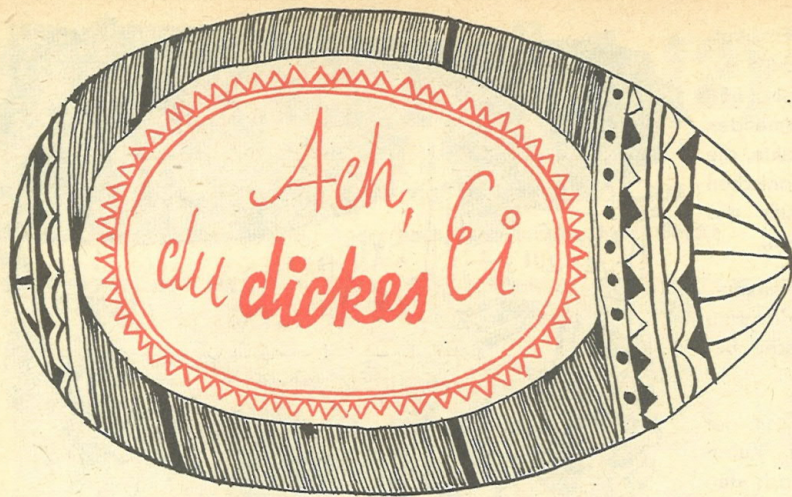 Ach,
du dickes Ei